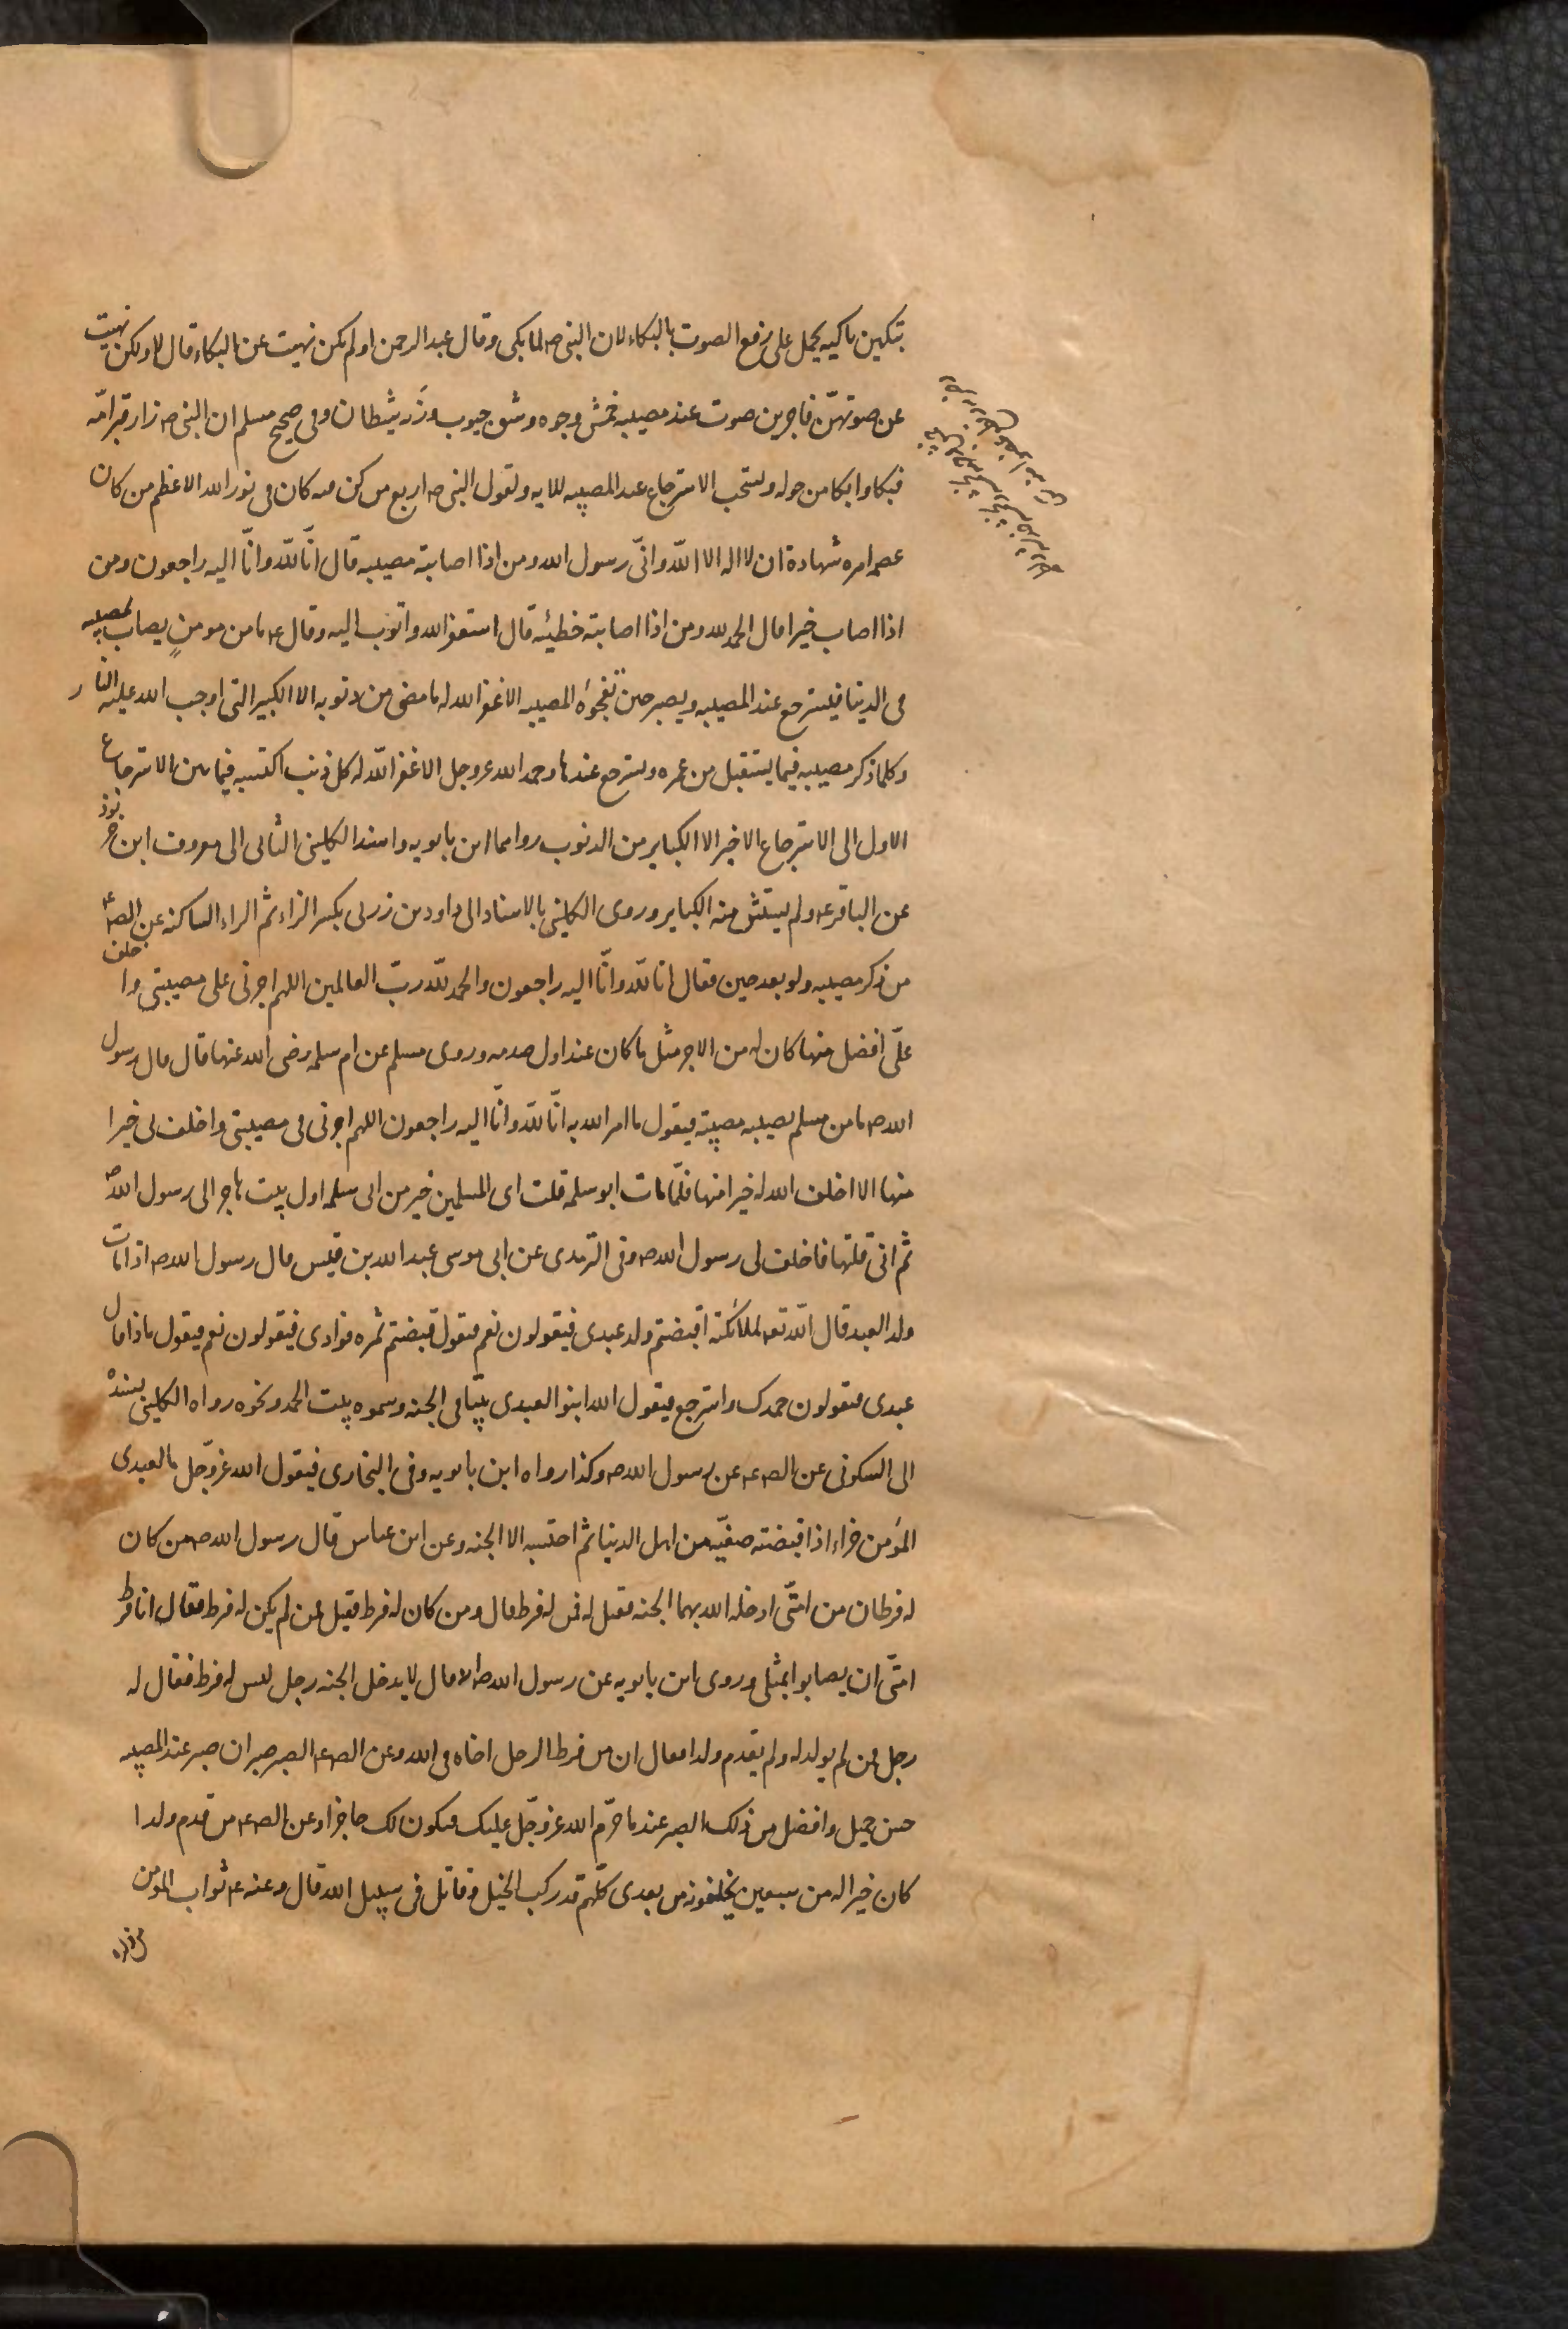 تبكين باكيه يحمل على رفع الصوت بالبكاء لان النبى ص لما بكى وقال عبد الرحمن او لم تكن نهيت عن البكاء قال لا ولكن نهيت
عن صوتين فاجرين صوت عند مصيبه خمش وجوه وشق جيوب ورنه شيطان وفى صحيح مسلم ان النبى ص زار قبر امّه
فبكا وابكا من حوله ويستحب الاسترجاع عند المصيبه للايه ولقول النبى ص اربع من كن فيه كان فى نور الله الاعظم من كان
عصمه امره شهادة ان لا اله الا اللّه وانّى رسول الله ومن اذا اصابته مصيبه قال انّا للّه وانّا اليه راجعون ومن
اذا اصاب خيرا قال الحمد لله ومن اذا اصابته خطيئه قال استغفر الله واتوب اليه وقال ع ما من مومنٍ يصاب بمصيبه
فى الدنيا فيسترجع عند المصيبه ويصبر حين تفجؤه المصيبه الا غفر الله له ما مضى من ذنوبه الا الكبير التى اوجب الله عليه النار
وكلما ذكر مصيبه فيما يستقبل من عمره فاسترجع عندها وحمد الله عز وجل الا غفر اللّه له كل ذنب اكتسبه فيما بين الاسترجاع
الاول الى الاسترجاع الاخير الا الكباير من الذنوب رواهما ابن بابويه واسند الكلينى الثانى الى معروف ابن خربوذ
عن الباقر ع ولم يستثن منه الكباير وروى الكلينى بالاسناد الى داود بن زربى بكسر الزاء ثم الراء الساكنه عن الص ع
من ذكر مصيبه ولو بعد حين فقال انا للّه وانّا اليه راجعون والحمد للّه ربّ العالمين اللهم اجرنى على مصيبتى واخلف
علىّ افضل منها كان له من الاجر مثل ما كان عند اول صدمه وروى مسلم عن ام سلمه رضى الله عنها قال قال رسول
الله ص ما من مسلم يصيبه مصيبته فيقول ما امر الله به انّا للّه وانّا اليه راجعون اللهم اجرنى فى مصيبتى واخلف لى خيرا
منها الا اخلف الله له خيرا منها فلمّا مات ابو سلمه قلت اى المسلمين خير من ابى سلمه اول بيت هاجر الى رسول اللّه ص
ثم انى قلتها فاخلف لى رسول الله ص وفى الترمذى عن ابى موسى عبد الله بن قيس قال رسول الله ص اذا مات
ولد العبد قال اللّه تع لملائكته اقبضتم ولد عبدى فيقولون نعم فيقول قبضتم ثمره فوادى فيقولون نعم فيقول ماذا قال
عبدى فيقولون حمدك واسترجع فيقول الله ابنوا لعبدى بيتا فى الجنه وسموه بيت الحمد ونحوه رواه الكلينى بسنده
الى السكونى عن الص ع عن رسول الله ص وكذا رواه ابن بابويه وفى البخارى فيقول الله عزّ وجل ما لعبدى
المؤمن جزاء اذا قبضته صفيّه من اهل الدنيا ثم احتسبه الا الجنه وعن ابن عباس قال رسول الله ص من كان
له فرطان من امتّى ادخله الله بهما الجنه فقيل له فمن له فرط قال ومن كان له فرط فقيل فمن لم يكن له فرط فقال انا فرط
امتّى ان يصابوا بمثلى وروى ابن بابويه عن رسول الله ص قال لا يدخل الجنه رجل ليس له فرط فقال له
رجل فمن لم يولد له ولم يقدم ولدا فقال ان من فرط الرجل اخاه فى الله وعن الص ع الصبر صبران صبر عند المصيبه
حسن جميل وافضل من ذلك الصبر عند ما حرّم الله عزّ وجلّ عليك فيكون لك حاجزا وعن الص ع من قدم ولدا
كان خيرا له من سبعين يخلفونه من بعدى كلّهم قد ركب الخيل وقاتل فى سبيل الله قال وعنه ع ثواب المومن